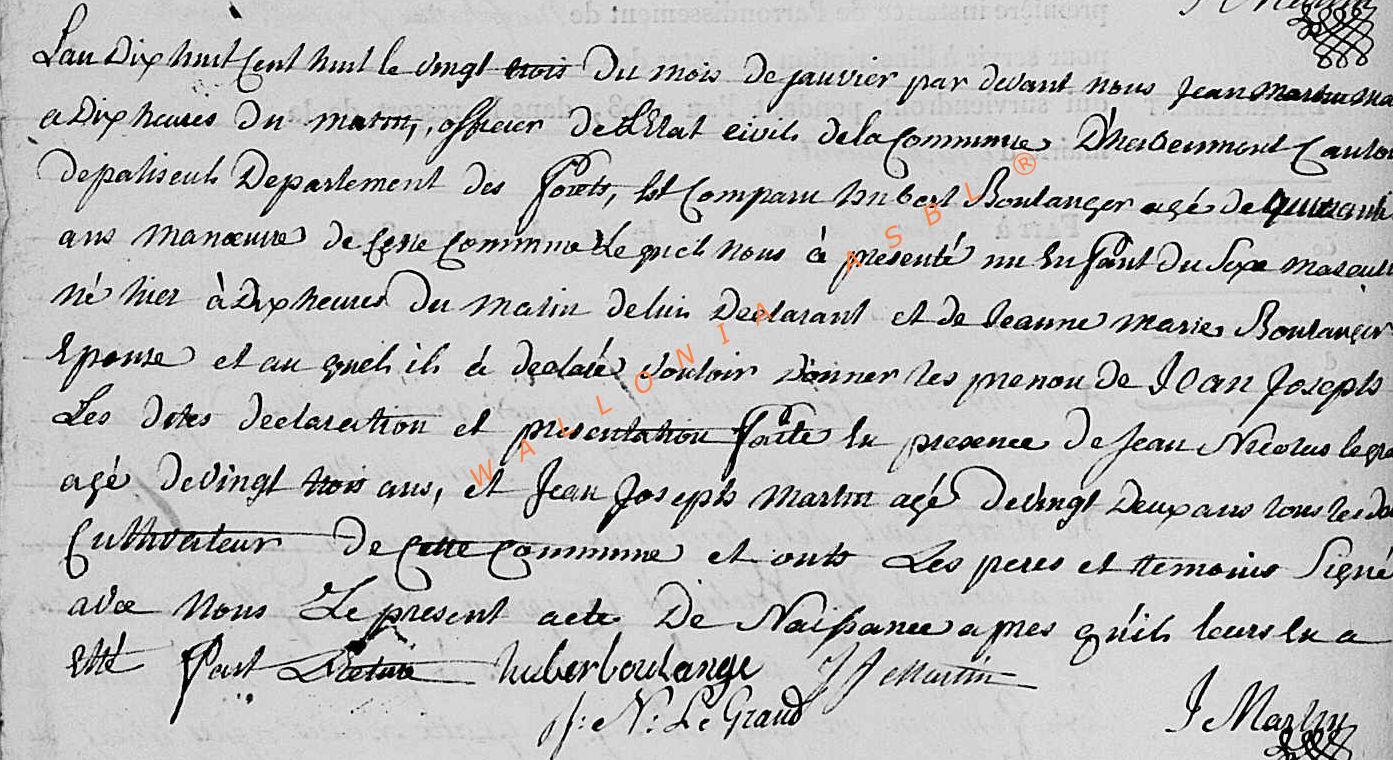 J Martin
Lan Dix huit Cent huit le vingt trois du mois de janvier par devant nous Jean Martin Ma
a Dix heures du matin, officier de l'Etat civils de la Commune D'herbeumont Canton
de paliseuls Departement des forets, Est Comparu hubert Boulanger agé de quarante
ans manœuvre de Cette Commune Le quel nous à presenté un Enfant du Sexe mascul
né hier à Dix heures du matin de lui Declarant et de Jeanne Marie Boulanger
Epouse et au quels ils à declaré vouloir donner les prenou de Jean Josephs
Les dites declaration et presentation faite En presence de Jean Nicolas legra
agé de vingt trois ans, et Jean Josephs Martin agé de vingt Deux ans tous les deu
Cultivateur de Cette Commune et onts Les peres et temoins Signé
avec Nous Le present acte De Naissance apres qu'ils leurs En a
Etté fait Lecture huberboulange JJ Martin
J: N: Le Grand
J Martin
WALLONIA ASBL ®